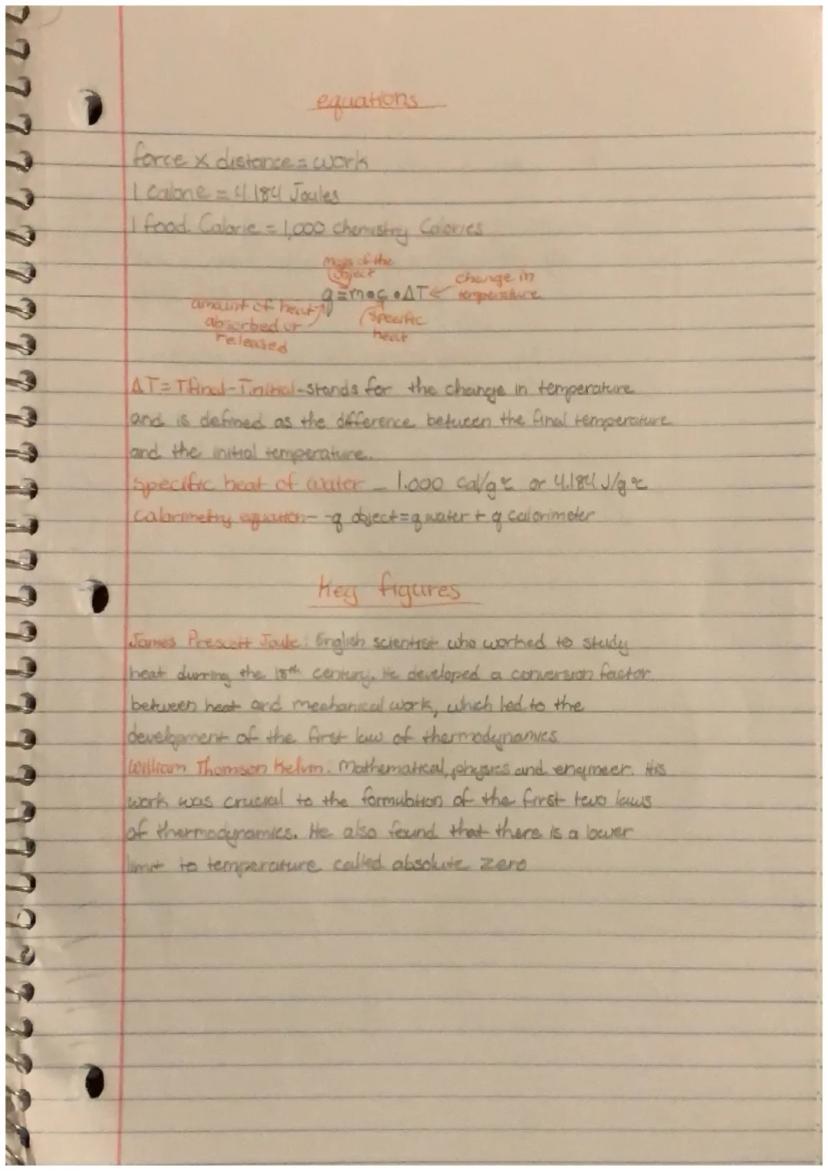 equations
force x distance = work
1 calorie = 4.184 Joules
1 food Calorie = 1,000 Chemistry Calories
mass of the
object
change in
temperature
q = m • c • ΔT
amount of heat
absorbed or
released
specific
heat
ΔT = Tfinal - Tinitial - stands for the change in temperature
and is defined as the difference between the final temperature
and the initial temperature.
Specific heat of water - 1.000 Cal/g°c or 4.184 J/g°c
Calorimetry equation - -q object = q water + q calorimeter
Key figures
James Prescott Joule: English scientist who worked to study
heat durring the 18th century. He developed a conversion factor
between heat and mechanical work, which led to the
development of the first law of thermodynamics
William Thomson Kelvin: Mathematical, physics and engineer. His
work was crucial to the formulation of the first two laws
of thermodynamics. He also found that there is a lower
limit to temperature called absolute zero